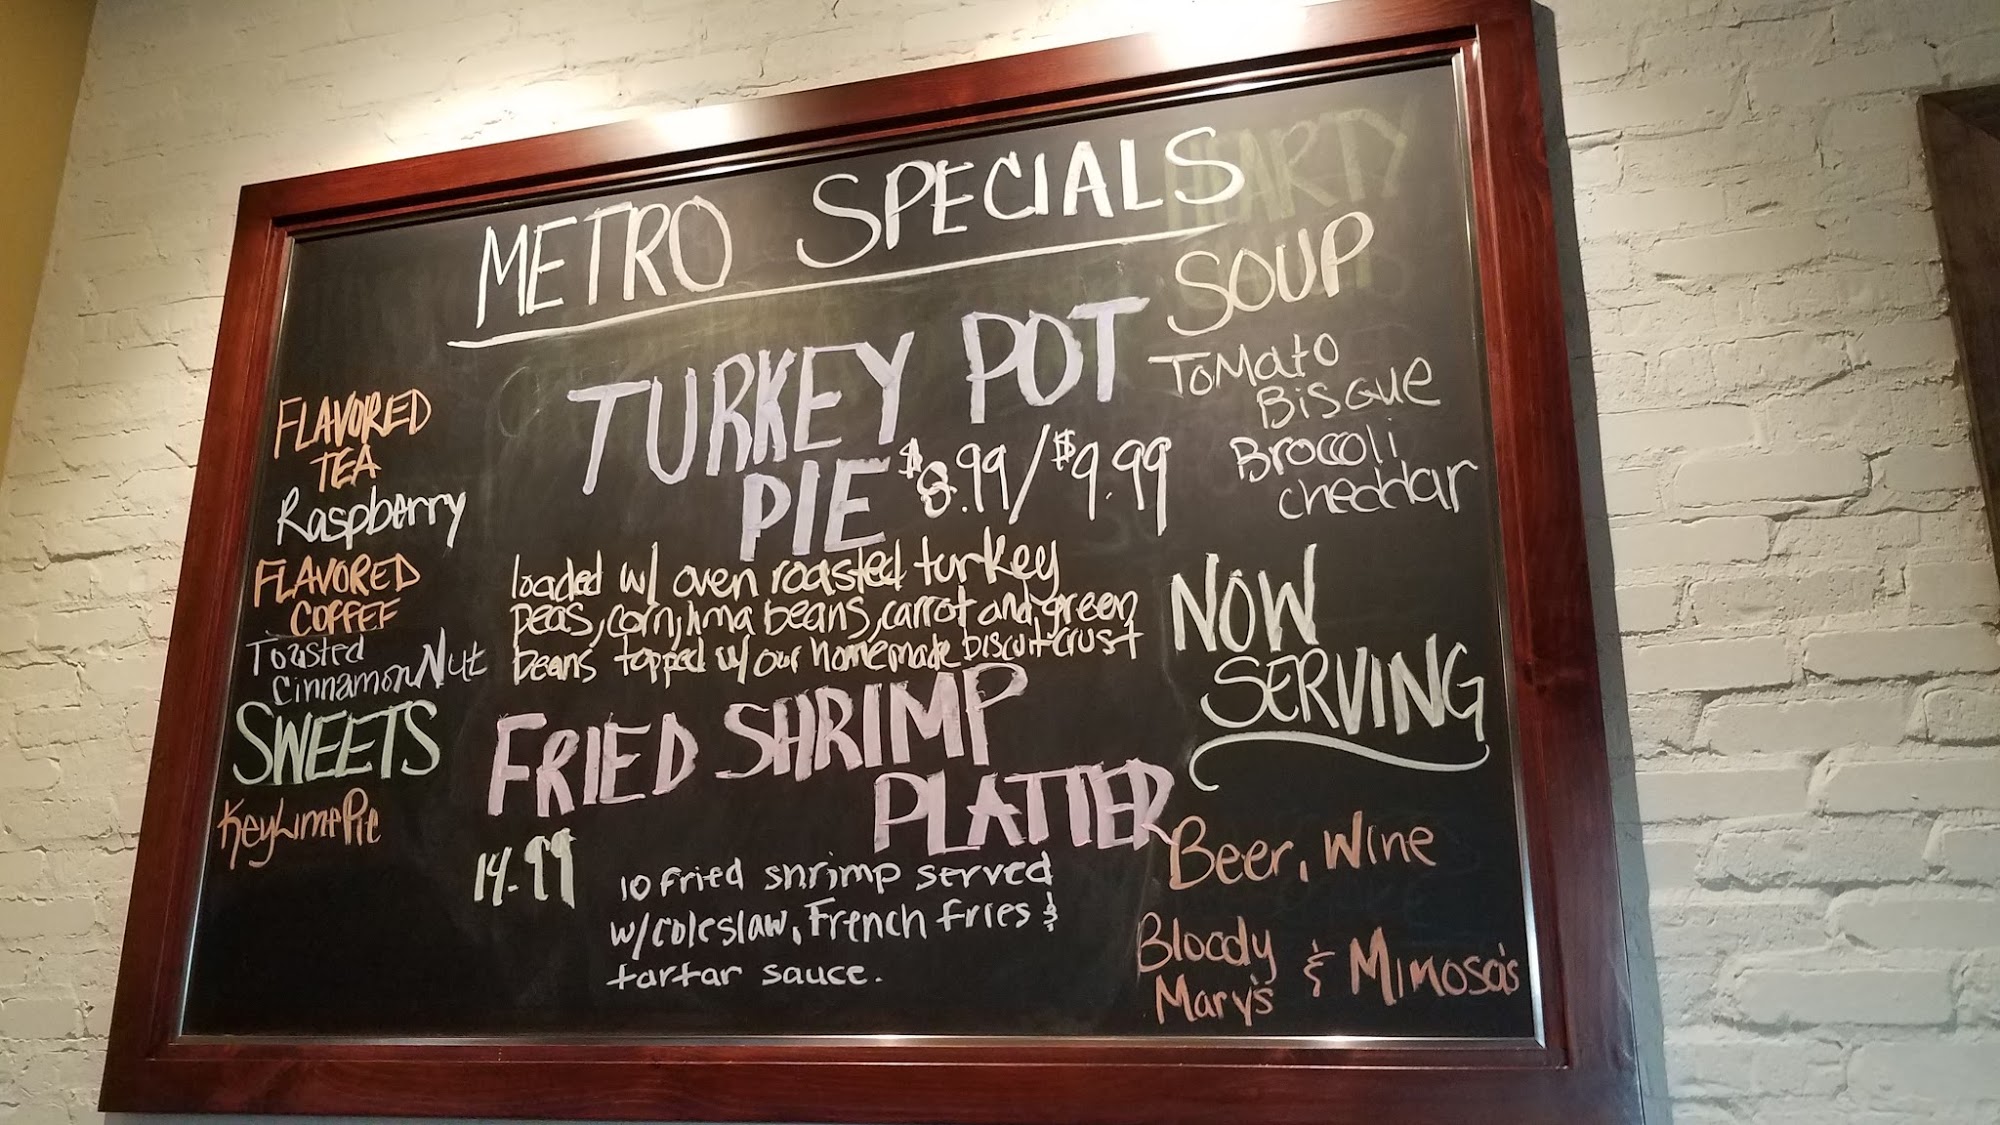 METRO SPECIALS
FLAVORED
TEA
Raspberry
FLAVORED
COFFEE
Toasted
Cinnamon Nut
SWEETS
Key Lime Pie
TURKEY POT
PIE $8.99/$9.99
loaded w/ oven roasted turkey
peas, corn, lima beans, carrot and green
beans topped w/ our homemade biscuit crust
FRIED SHRIMP
PLATTER
14.99
10 Fried shrimp served
w/coleslaw, French fries &
tartar sauce.
HEARTY
SOUP
Tomato
Bisque
Broccoli
cheddar
NOW
SERVING
Beer, Wine
Bloody
Mary's & Mimosa's